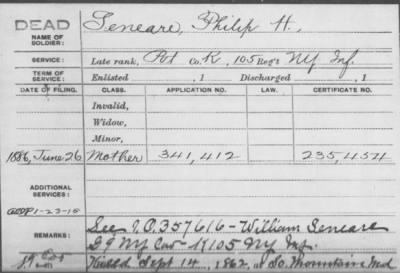 DEAD
NAME OF SOLDIER: Seneare, Philip H.
SERVICE: Late rank, Pvt Co. K, 105 Reg't NY Inf.
TERM OF SERVICE: Enlisted , 1 Discharged , 1
DATE OF FILING. CLASS. APPLICATION NO. LAW. CERTIFICATE NO.
Invalid,
Widow,
Minor,
1886, June 26 Mother 341,412 235,454
ADDITIONAL SERVICES:
1-23-15
REMARKS: See I.O. 357616 - William Seneare
D 9 NY Cav - K 105 NY Inf.
Killed Sept 14, 1862, So. Mountain Md